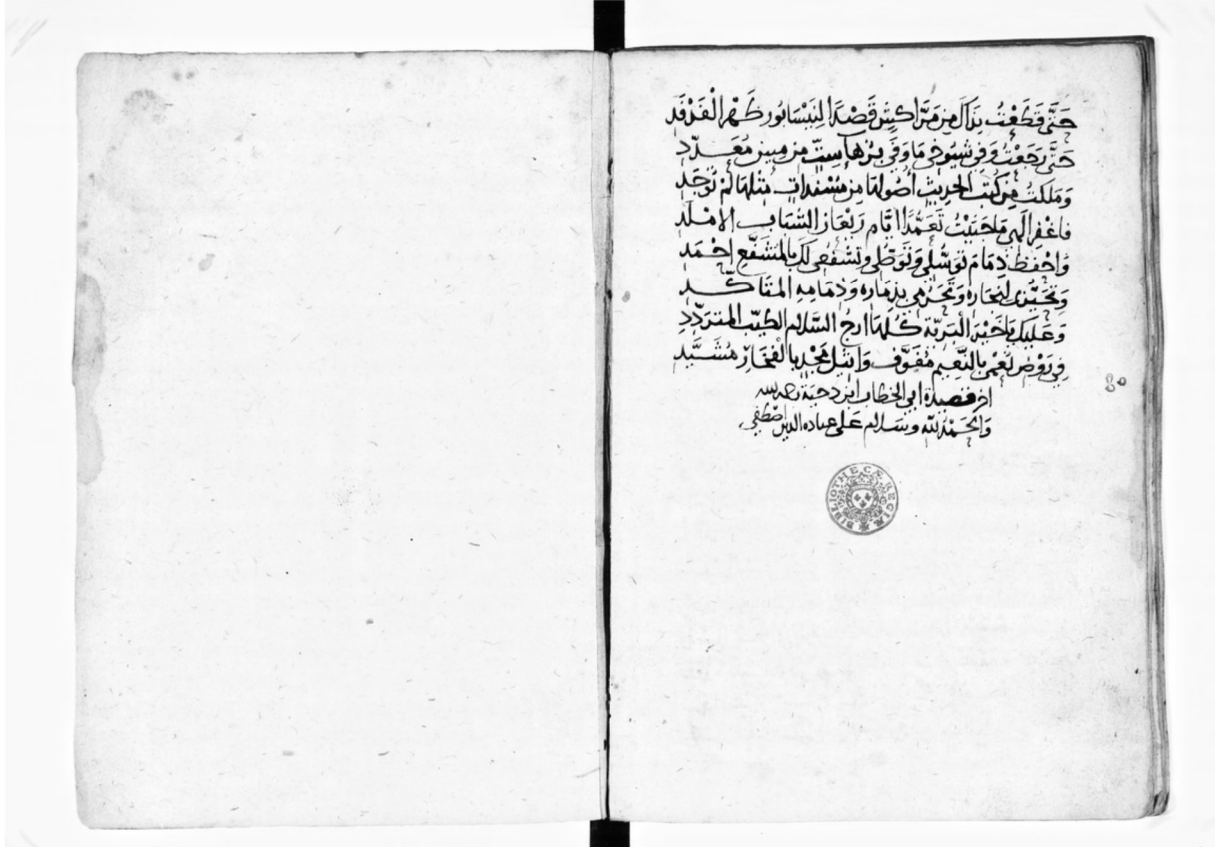 حَتَّى قَطَعْتُ بِذَاكَ مِن مَرَّاكِشٍ قَصْدًا لِنَيْسَابُورَ ظَهْرَ الْفَدْفَدِ
حَتَّى رَجَعْتُ وَفِي ما وفى من سنين مُعَدَّدِ
وَمَلَكْتُ مِن كُتُبِ الحَدِيثِ أُصُولَهَا مِن مُسْنَدَاتٍ مِثْلُهَا لَمْ تُوجَدِ
فَاغْفِر إِلَهِي مَا جَنَيْتُ تَعَمُّدًا أَيَّامَ رَيْعَانِ الشَّبَابِ الامْلَدِ
وَاحْفَظْ ذِمَامَ تَوَسُّلِي وَتَشَفُّعِي لَكَ بِالْمُشَفَّعِ أَحْمَدِ
وَتَحَرُّمِي بِذِمَارِهِ وَذِمَامِهِ المتأكِّدِ
وَعَلَيْكَ يَا خَيْرَ الْبَرِيَّةِ كُلِّهَا أَرَجُ السَّلَامِ الطَّيِّبِ الْمُتَرَدِّدِ
فِي رَوْضِ بِالنَّعِيمِ مُفَوَّفٍ بِالْفَخَارِ مُشَيَّدِ
قصيدة ابي الخطاب ابن دحية رحمه الله
وَالْحَمْدُ لِلَّهِ وَسَلَامٌ عَلَى عِبَادِهِ الذين اصْطَفَى
80
BIBLIOTHECÆ REGIÆ